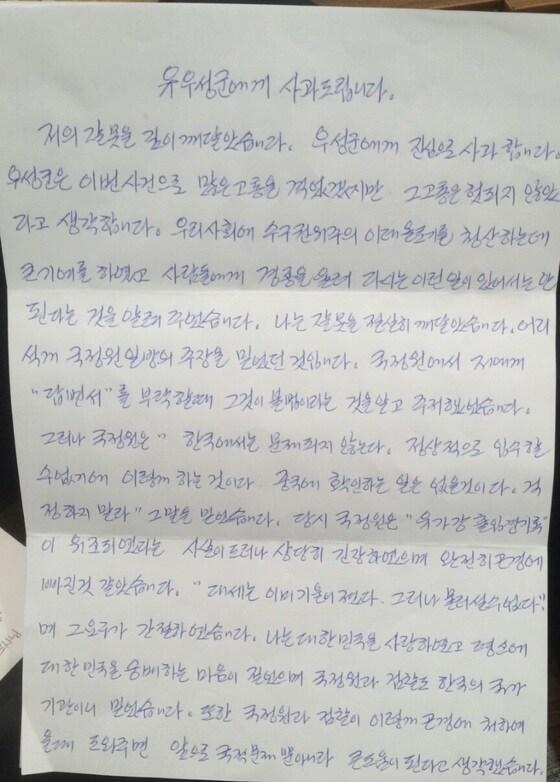 유우성군에게 사과드립니다.
저의 잘못을 깊이 깨달았습니다. 우성군에게 진심으로 사과 합니다.
우성군은 이번 사건으로 많은 고통을 격었겠지만 그 고통은 헛되지 않았
다고 생각합니다. 우리사회에 수구 이데올로기를 청산하는데
큰 기여를 하였고 사람들에게 경종을 울려 다시는 이런 일이 있어서는 안
된다는 것을 알려 주었습니다. 나는 잘못을 절실히 깨달았습니다. 어리
석게 국정원 일방의 주장을 믿었던 것입니다. 국정원에서 저에게
"답변서"를 부탁할 때 그것이 불법이라는 것을 알고 주저했었습니다.
그러나 국정원은 " 한국에서는 문제되지 않는다. 정상적으로 입수할
수 없기에 이렇게 하는 것이다. 중국에 확인하는 일은 없을것이다. 걱
정하지 말라" 그 말을 믿었습니다. 당시 국정원은 "유가강 출입경기록"
이 위조되었다는 사실이 드러나 상당히 긴장하였으며 완전히 곤경에
빠진것 같았습니다. "대세는 이미 기울어졌다. 그러나 물러설 수 없다."
며 그 요구가 간절하였습니다. 나는 대한민국을 사랑하였고 평소에
대한민국을 숭배하는 마음이 있으며 국정원과 검찰도 한국의 국가
기관이니 믿었습니다. 또한 국정원과 검찰이 이렇게 곤경에 처하여
을때 도와주면 앞으로 국적문제 뿐아니라 큰 도움이 된다고 생각했습니다.